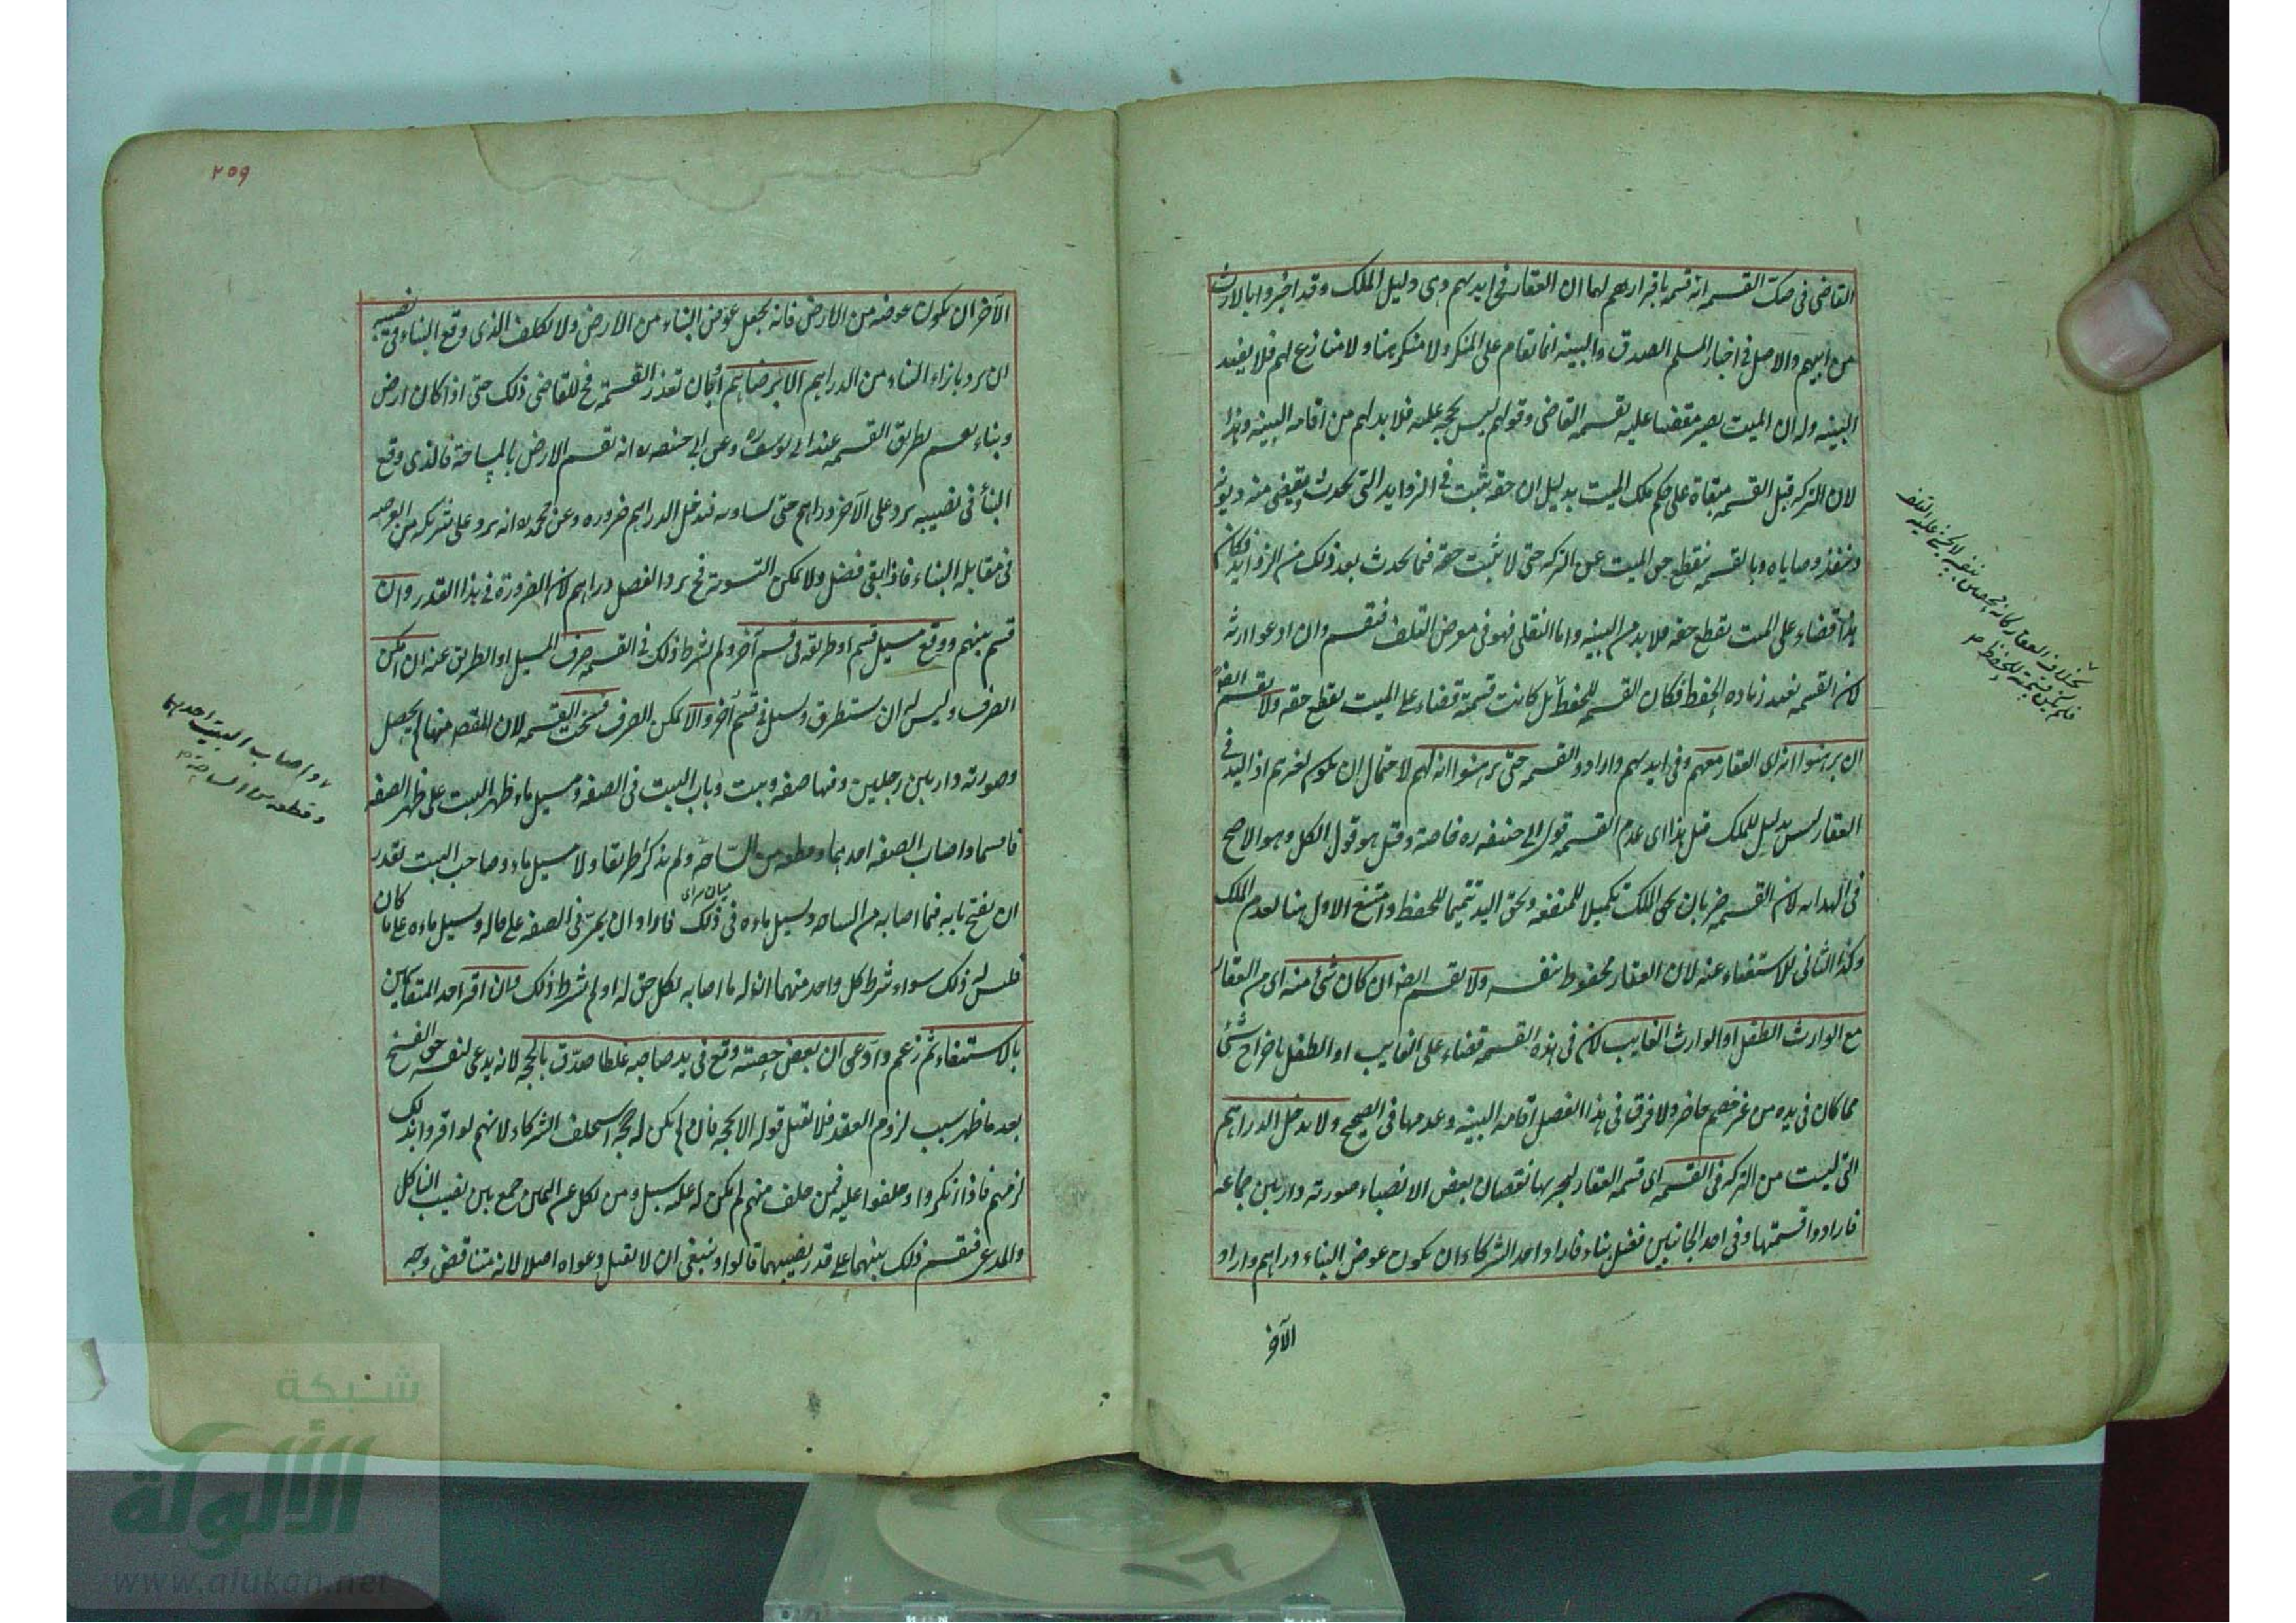 القاضى فى صك القسمة انه قسمه باقرارهم لهما ان العقار فى ايديهم وهى دليل الملك وقد اخبروا بالارث
من ابيهم والاصل فى اخبار المسلم الصدق والبينه انما تقام على المنكر ولا منكر هنا ولا منازع لهم فلا يفيد
البينه وله ان الميت يصير مقضيا عليه بقسمه القاضى وقولهم ليس بحجه عليه فلا بد لهم من اقامه البينه وهذا
لان التركه قبل القسمه مبقاة على حكم ملك الميت بدليل ان حقه يثبت فى الزوايد التى تحدث ويقضى منه ديونه
وينفذ وصاياه وبالقسمه ينقطع حق الميت عن التركه حتى لا يثبت حقه فيما يحدث بعد ذلك من الزوايد فكان
هذا قضاء على الميت بقطع حقه فلا بد من البينه واما النقلى فهو فى معرض التلف فيقسم وان ادعوا ارثه
لان القسمه تفيد زياده الحفظ فكان القسمه للحفظ بل كانت قسمته قضاء على الميت بقطع حقه ولا يقسم
ان برهنوا انه اى العقار معهم وفى ايديهم وارادوا القسمه حتى برهنوا انه لهم لاحتمال ان يكون لغيرهم اذ اليد فى
العقار ليس بدليل للملك قيل هذا اى عدم القسمه قول ابى حنيفه ره خاصة وقيل هو قول الكل وهو الاصح
فى الهدايه لان القسمه ضربان بحق الملك تكميلا للمنفعه وبحق اليد تتميما للحفظ وامتنع الاول هنا لعدم الملك
وكذا الثانى للاستغناء عنه لان العقار محفوظ بنفسه ولا يقسم ايضا ان كان شئ منه اى من العقار
مع الوارث الطفل او الوارث الغايب لان فى هذه القسمه قضاء على الغايب او الطفل باخراج شئ
مما كان فى يده من غير خصم حاضر ولا فرق فى هذا الفصل اقامه البينه وعدمها فى الصحيح ولا يدخل الدراهم
التى ليست من التركه فى القسمه اى قسمه العقار ليجبر بها نقصان بعض الانصباء صورته دار بين جماعه
فارادوا قسمتها وفى احد الجانبين فضل بناء فاراد احد الشركاء ان يكون عوض البناء دراهم واراد
الآخر
بخلاف العقار
٢٥٩
الآخر ان يكون عوضه من الارض فانه يجعل عوض البناء من الارض ولا يكلف الذى وقع البناء فى نصيبه
ان يرد بازاء البناء من الدراهم الا برضاهم او كان تعذر القسمة فح للقاضى ذلك حتى اذا كان ارض
وبناء يقسم بطريق القسمه عند ابى يوسف ره وعن ابى حنيفه ره انه يقسم الارض بالمساحة فالذى وقع
البناء فى نصيبه يرد على الآخر دراهم حتى يساويه فتدخل الدراهم ضروره وعن محمد ره انه يرد على شريكه من العرصه
فى مقابله البناء فاذا بقى فضل ولا يمكن التسوية فح يرد الفضل دراهم لان الضرورة فى هذا القدر وان
قسم بينهم ووقع مسيل قسم او طريقه فى قسم آخر ولم يشرط ذلك فى القسمه صرف المسيل او الطريق عنه ان امكن
الصرف وليس له ان يستطرق ويسيل فى قسم آخر والا يمكن الصرف فسخت القسمه لان المقصد منها لم يحصل
وصورته دار بين رجلين وفيها صفه وبيت وباب البيت فى الصفه ومسيل ماء ظهر البيت على ظهر الصفه
فاقتسما واصاب الصفه احدهما وقطعه من الساحه ولم يذكرا طريقا ولا مسيل ماء وصاحب البيت يقدر
ميان سراى
ان يفتح بابه فيما اصابه من الساحه ويسيل ماءه فى ذلك فاراد ان يمر فى الصفه على حاله ويسيل ماءه على ما كان
فليس له ذلك سواء شرط كل واحد منهما ان له ما اصابه بكل حق له او لم يشرط ذلك وان اقر احد المتقاسمين
بالاستيفاء ثم زعم وادعى ان بعض حصته وقع فى يد صاحبه غلطا صدق بالحجه لانه يدعى لنفسه حق الفسخ
بعد ما ظهر سبب لزوم العقد فلا تقبل قوله الا بحجه فان لم يكن له حجه استحلف الشركاء لانهم لو اقروا بذلك
لزمهم فاذا انكروا وحلفوا عليه فمن حلف منهم لم يكن له عليه سبيل ومن نكل عن اليمين جمع بين نصيب الناكل
والمدعى فيقسم ذلك بينهما على قدر نصيبهما قالوا وينبغى ان لا تقبل دعواه اصلا لانه متناقض وجه
واصاب البيت احدهما
وقطعه من الساحه
شبكة
الألوكة
www.alukah.net